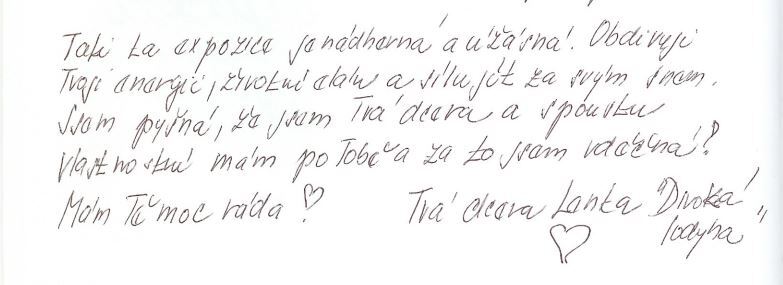 Tati ta expozice je nádherná a úžásná! Obdivuji
Tvoji energii, životní elán a sílu jít za svým snem.
Jsem pyšná, že jsem Tvá dcera a spoustu
vlastností mám po Tobě a za to jsem vděčná!
Mám Tě moc ráda! ♡ Tvá dcera Lenka "Divoká
jodyha"
♡